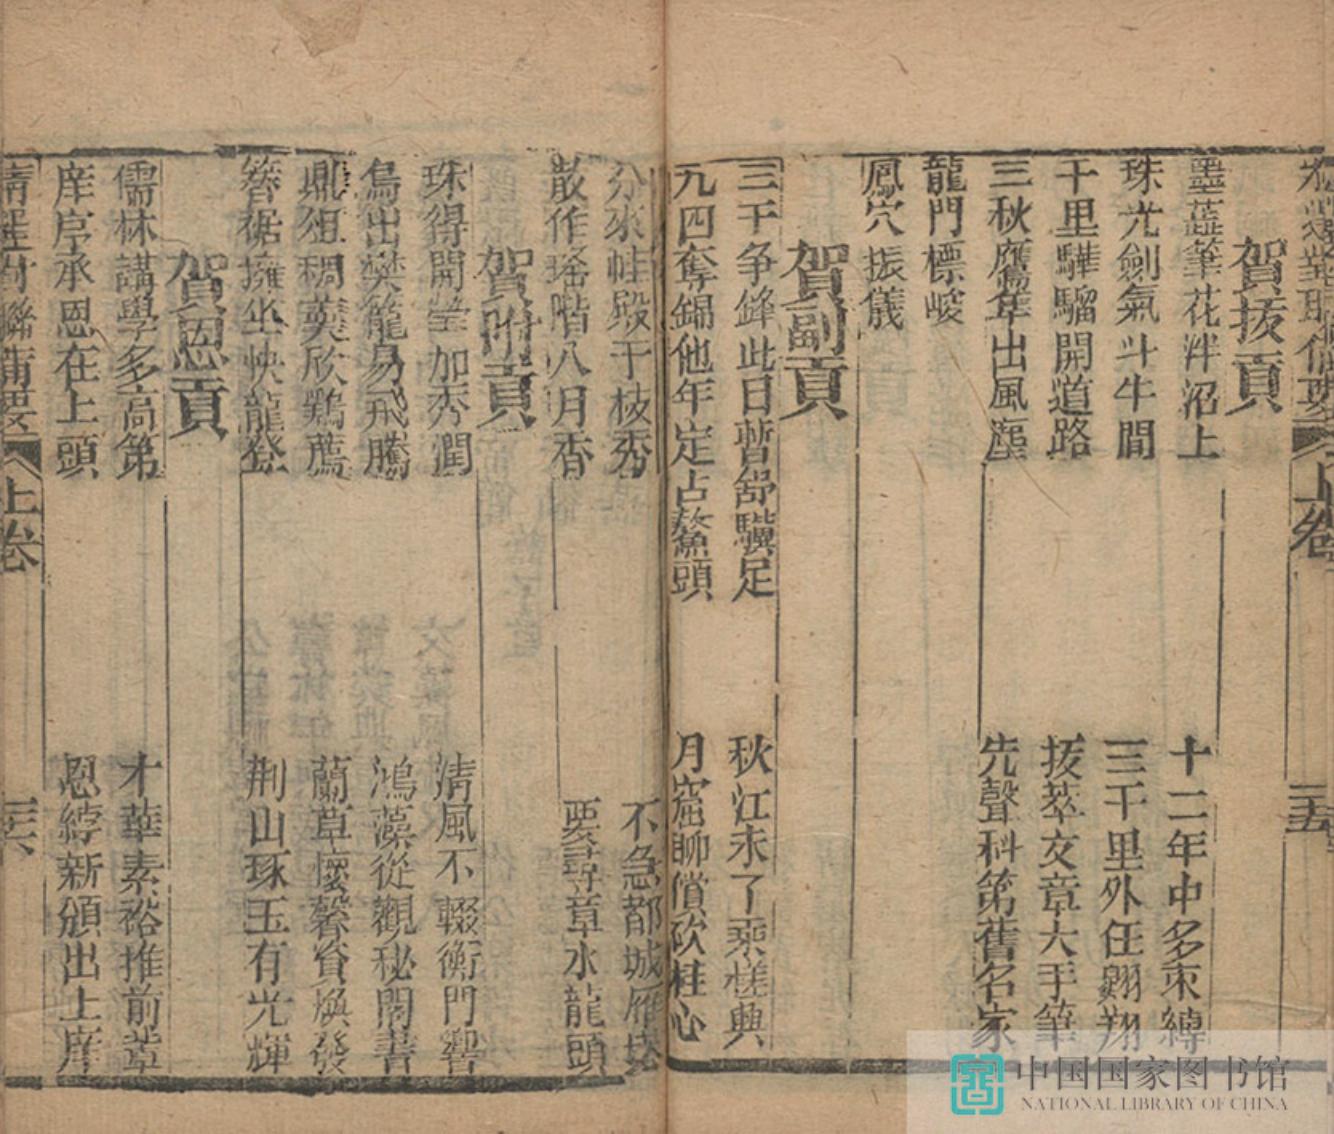 上卷
二十五
賀拔貢
墨蕋筆花泮沼上
十二年中多束縛
珠光劍氣斗牛間
三千里外任翱翔
千里驊騮開道路
拔萃文章大手筆
三秋鷹隼出風塵
先聲科第舊名家
龍門標峻
鳳穴振儀
賀副貢
三千争鋒此日暫舒驥足
秋江未了乘槎興
九四奪錦他年定占鰲頭
月窟聊償砍桂心
分來桂殿千枝秀
不急都城雁塔
散作瑤階八月香
要尋章水龍頭
賀附貢
珠得開瑩加秀潤
清風不輟衡門響
鳥出樊籠易飛騰
鴻藻從觀秘閣書
鼎俎稠羮欣鶚薦
蘭草懷馨資煥發
簪裾擁坐快龍登
荆山琢玉有光輝
賀恩貢
儒林講學多高第
才華素裕推前輩
庠序承恩在上頭
恩綍新頒出上庠
上卷
二十六
中国国家图书馆
NATIONAL LIBRARY OF CHINA